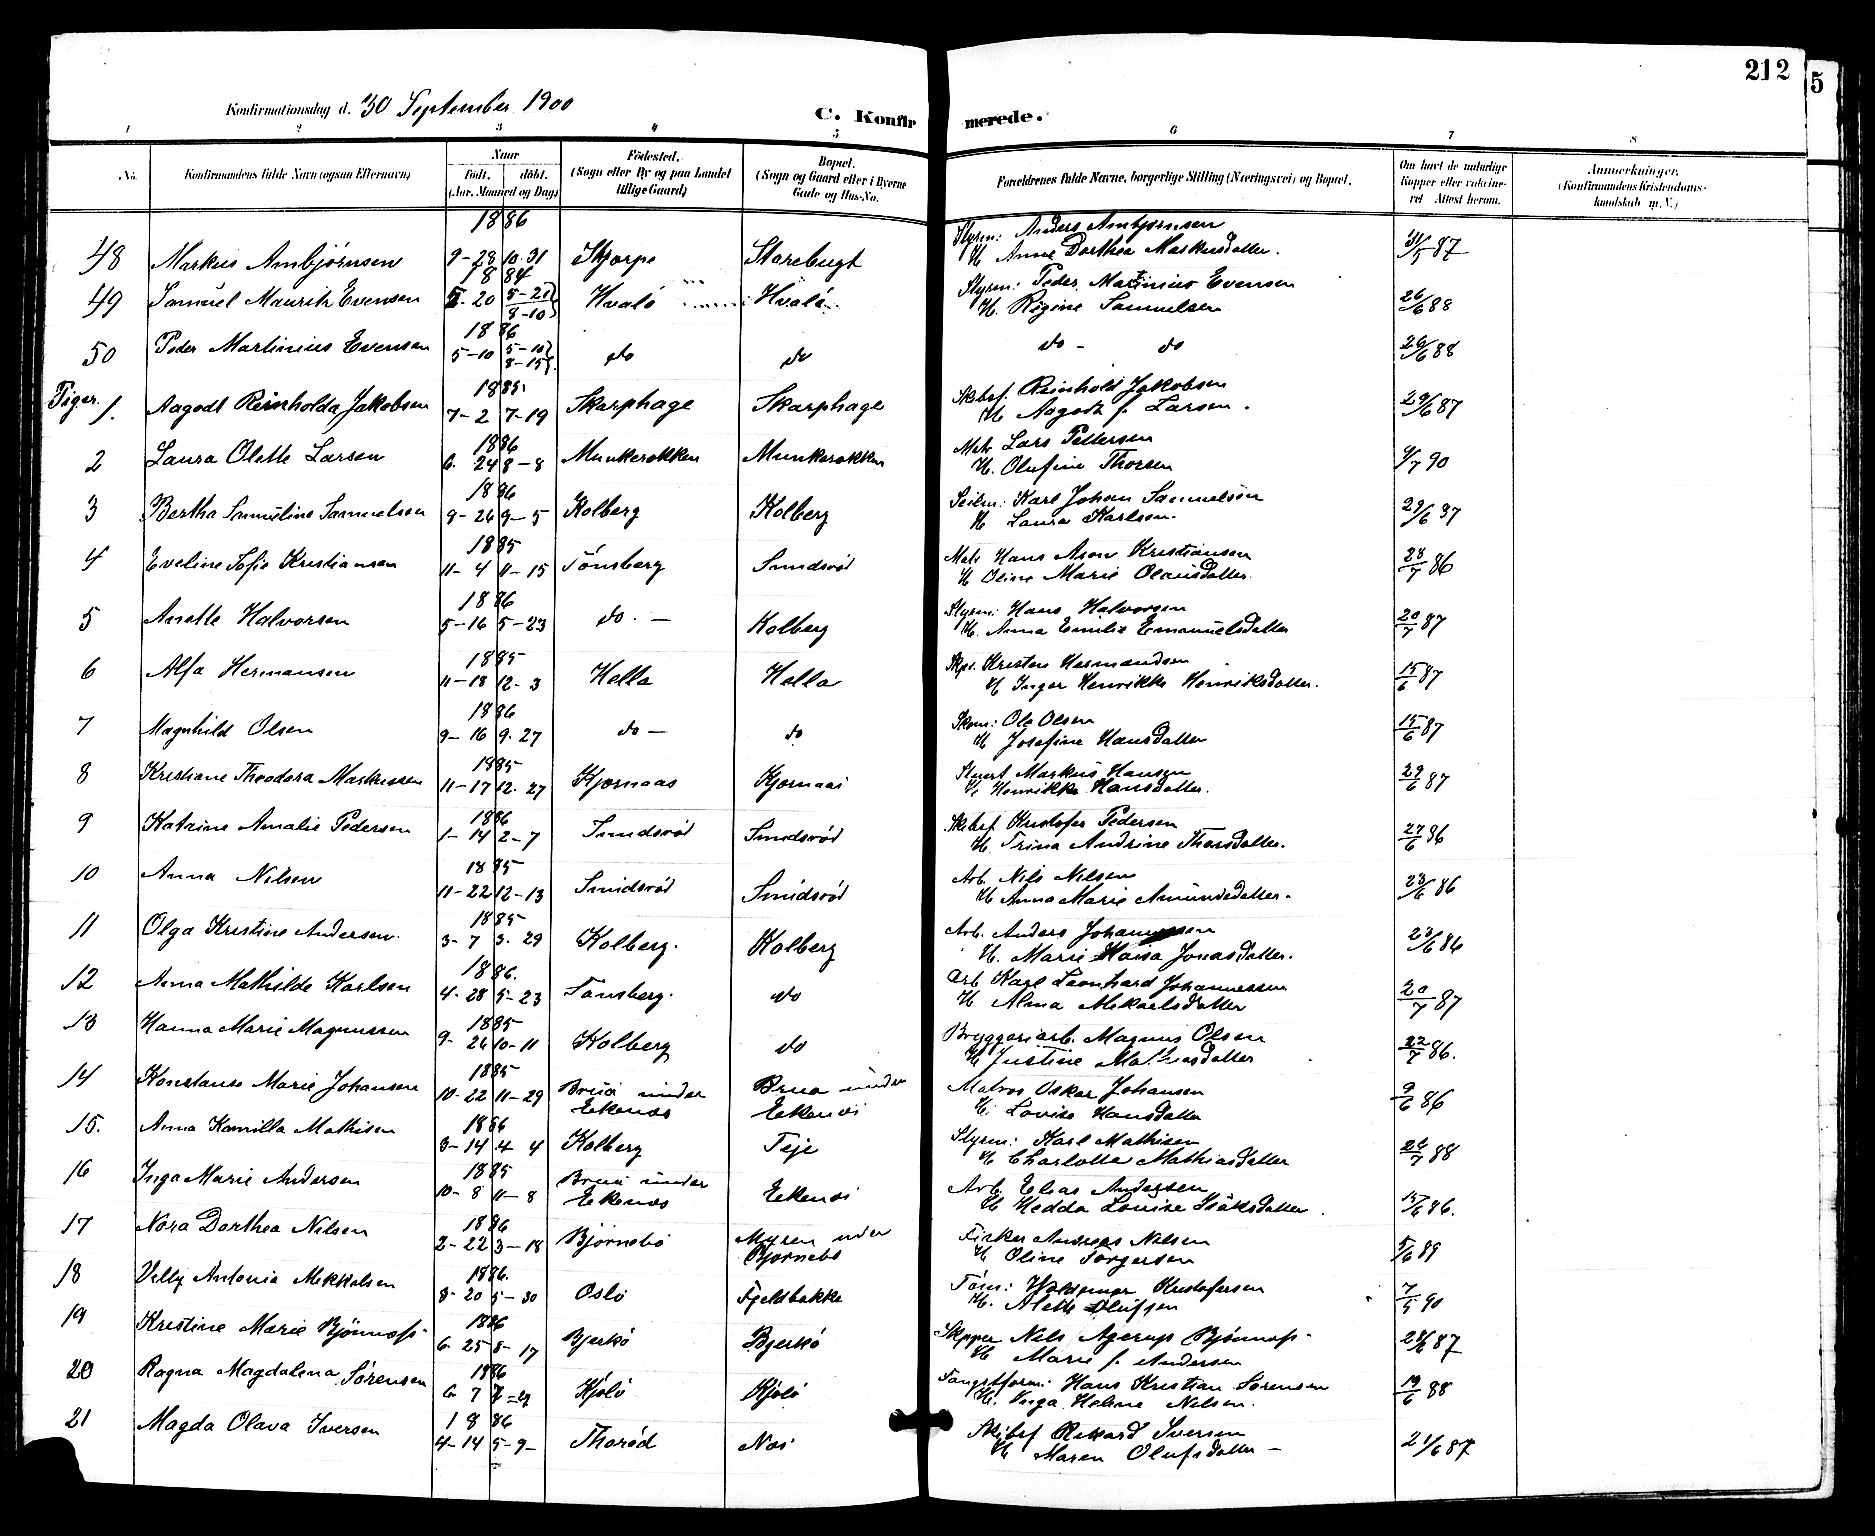 212
5
Konfirmationsdag d. 30 September 1900
C. Konfir merede.
1 2 3 4 5 6 7 8
No.
Konfirmandens fulde Navn (ogsaa Efternavn)
Naar
födt. döbt.
(Aar, Maaned og Dag)
Födested.
(Sogn eller By og paa Landet tillige Gaard)
Bopæl.
(Sogn og Gaard eller i Byerne Gade og Hus-No.
Forældrenes fulde Navne, borgerlige Stilling (Næringsvei) og Bopæl.
Om havt de naturlige Kopper eller vakcineret Attest herom.
Anmerkninger.
(Konfirmandens Kristendomskundskab m. V.)
1886
Styrm: Anders Ambjörnsen
48 Markus Ambjörnsen 9-28 10-31 Skjerpe Starebugt H. Anne Dorthea Markusdatter. 31/5 87
1884
Styrm: Peder Martinius Evensen
49 Samuel Mauritz Evensen 5-20 5-25 8-10 Hvalö Hvalö H. Regine Samuelsen 26/6 88
1886
50 Peder Martinius Evensen 5-10 5-10 8-15 do do do - do 26/6 88
Piger.
1885
Skibsf. Reinhold Jakobsen
1. Aagodt Reinholda Jakobsen 7-2 7-19 Skarphage Skarphage H Aagodt f. Larsen. 29/6 87
1886
Matr Lars Pettersen
2 Laura Olette Larsen 6-24 8-8 Munkerokken Munkerokken H. Olufine Thorsen 4/7 90
1886
Seilm: Karl Johan Samuelsen
3 Bertha Samueline Samuelsen 8-26 9-5 Kolberg Kolberg H Laura Karlsen. 29/6 87
1885
Matr Hans Aron Kristiansen
4 Eveline Sofie Kristiansen 11-4 11-15 Tönsberg Smidsröd H Oline Marie Olausdatter. 28/7 86
1886
Styrm: Hans Halvorsen
5 Anette Halvorsen 5-16 5-23 do. - Kolberg H. Anna Emilie Emanuelsdatter 20/7 87
1885
Skpr. Kristen Hermandsen
6 Alfa Hermansen 11-18 12-3 Hella Hella H Inger Henrikke Henriksdatter. 15/6 87
1886
Skom: Ole Olsen
7 Magnhild Olsen 9-16 9-27 do - do H Josefine Hansdatter 15/6 87
1885
Stuert Markus Hansen
8 Kristiane Theodora Markussen 11-17 12-27 Kjornaas Kjornaas H. Henrikke Hansdatter. 29/6 87
1886
Skibsf Kristofer Pedersen
9 Katrine Amalie Pedersen 1-14 2-7 Smidsröd Smidsröd H. Trina Andrine Thorsdatter. 27/6 86
1885
Arb. Nils Nilsen
10 Anna Nilsen 11-22 12-13 Smidsröd Smidsröd H Anna Marie Amundsdatter. 23/6 86
1885
Arb. Anders Johannessen
11 Olga Kristine Andersen. 3-7 3-29 Kolberg. Kolberg H. Marie Maisa Jonasdatter. 23/6 86
1886.
Arb. Karl Leonhard Johannessen
12 Anna Mathilde Karlsen 4-28 5-23 Tönsberg. do H Alma Mikaelsdatter 20/7 87
1885
Bryggeriarb. Magnus Olsen
13 Hanna Marie Magnussen 9-26 10-11 Kolberg do H Justine Mathiasdatter 22/7 86.
1885
Matros Oskar Johansen
14 Konstanse Marie Johansen 10-22 11-29 Brua under Eekenæs Brua under Eekenæs H. Lovise Hansdatter 9/6 86
1886
Styrm: Karl Mathisen
15. Anna Kamilla Mathisen 3-14 4-4 Kolberg Teje H Charlotte Mathiasdatter 26/7 88
1885
Arb. Elias Andersen
16 Inga Marie Andersen 10-8 11-8 Brua under Eekenæs Eekenæs H Hedda Louise Isaksdatter. 15/6 86.
1886
Fisker Andreas Nilsen
17 Nora Dorthea Nilsen 2-22 3-18 Björnebö Myren under Björnebö H Oline Torgersen 5/6 89
1886.
Töm: Waldemar Kristofersen
18 Velly Antonia Mekkelsen 3-20 5-30 Oslo Fjeldbakke H. Alette Olufsen 7/5 90
1886
Skipper Nils Agerup Björnnæss
19 Kristine Marie Björnnæss 6-25 8-17 Bjerkö Bjerkö H Marie f. Andersen 28/6 87
1886
Fangstform: Hans Kristian Sörensen
20 Ragna Magdalena Sörensen 6-7 7-29 Kjölö Kjölö H. Inga Helene Nilsen. 19/6 88
1886
Skibsf Rikard Iversen
21 Magda Olava Iversen 4-14 5-9 Thoröd Næs H Maren Olufsdatter - 21/6 87